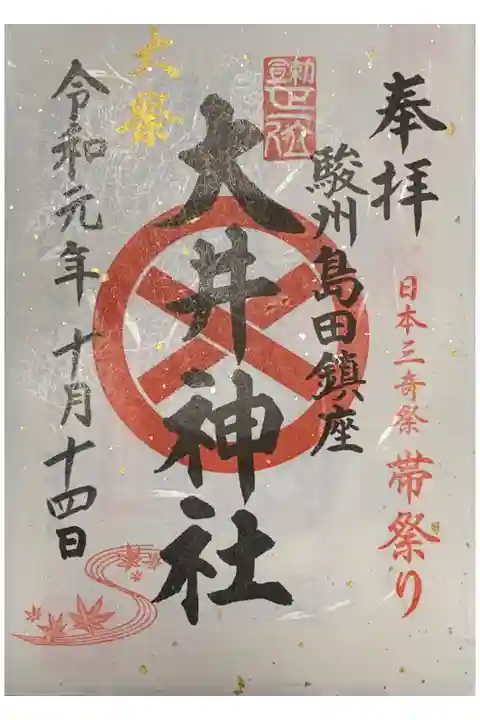 奉拝
日本三奇祭 帯祭り
駿州島田鎮座
勅宣正一位
大井神社
大祭
令和元年 十月十四日